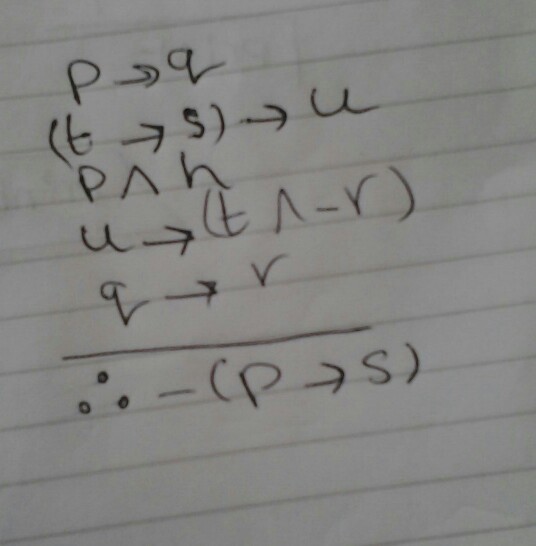 p → q
(t → s) → u
p ∧ h
u → (t ∧ -r)
q → r
∴ -(p → s)